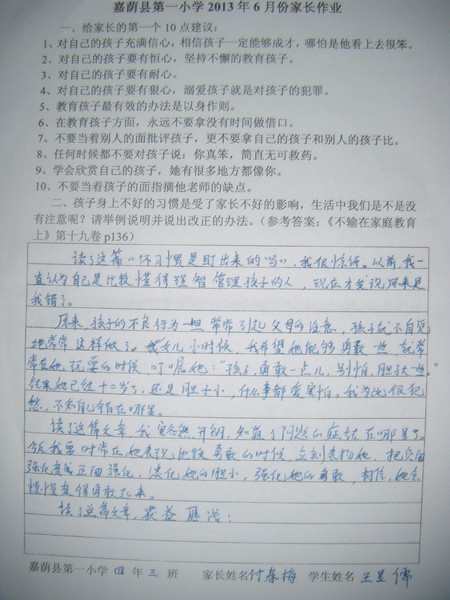 嘉荫县第一小学 2013 年 6 月份家长作业
一、给家长的第一个 10 点建议：
1、对自己的孩子充满信心，相信孩子一定能够成才，哪怕是他看上去很笨。
2、对自己的孩子要有恒心，坚持不懈的教育孩子。
3、对自己的孩子要有耐心。
4、对自己的孩子要有狠心，溺爱孩子就是对孩子的犯罪。
5、教育孩子最有效的办法是以身作则。
6、在教育孩子方面，永远不要拿没有时间做借口。
7、不要当着别人的面批评孩子，更不要拿自己的孩子和别人的孩子比。
8、任何时候都不要对孩子说：你真笨，简直无可救药。
9、学会欣赏自己的孩子，她有很多地方都像你。
10、不要当着孩子的面指摘他老师的缺点。
二、孩子身上不好的习惯是受了家长不好的影响，生活中我们是不是没
有注意呢？请举例说明并说出改正的办法。（参考答案：《不输在家庭教育
上》第十九卷 p136）
读了这篇“坏习惯是盯出来的吗”，我很惊讶。以前，我一
直认为自己是比较懂得理智管理孩子的人，现在才发现原来是
我错了。
原来，孩子的不良行为一旦常常引起父母的注意，孩子就不自觉
地常常这样做了。我女儿小时候，我希望她能够勇敢一些，就常
常在她玩耍的时候叮嘱她：“孩子，勇敢一点儿，别怕，胆大些。
结果她已经十二岁了，还是胆子小，什么事都爱害怕。我为此很犯
愁，不知自己错在哪里。
读了这篇文章，我突然开朗，知道了问题的症结在哪里了。
今后我要时常在她表现比较勇敢的时候，立刻表扬她，把负面
强化变成正面强化，淡化她的胆小，强化她的勇敢，相信，她会
慢慢变得勇敢起来。
读了这篇文章，获益匪浅！
嘉荫县第一小学 四 年 三 班 家长姓名 付春梅 学生姓名 王昱儒